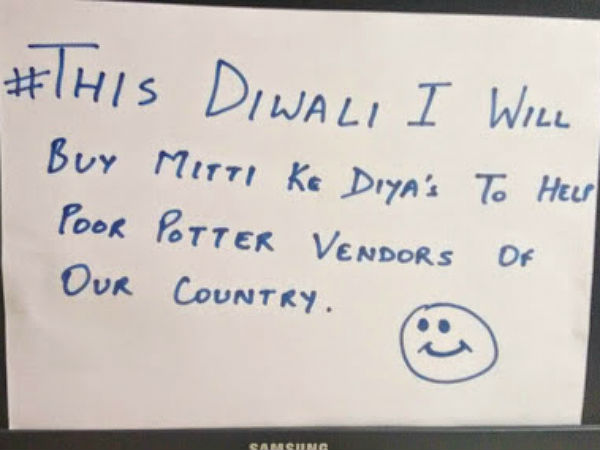 #THIS DIWALI I WILL
BUY MITTI KE DIYA'S TO HELP
POOR POTTER VENDORS OF
OUR COUNTRY.
SAMSUNG